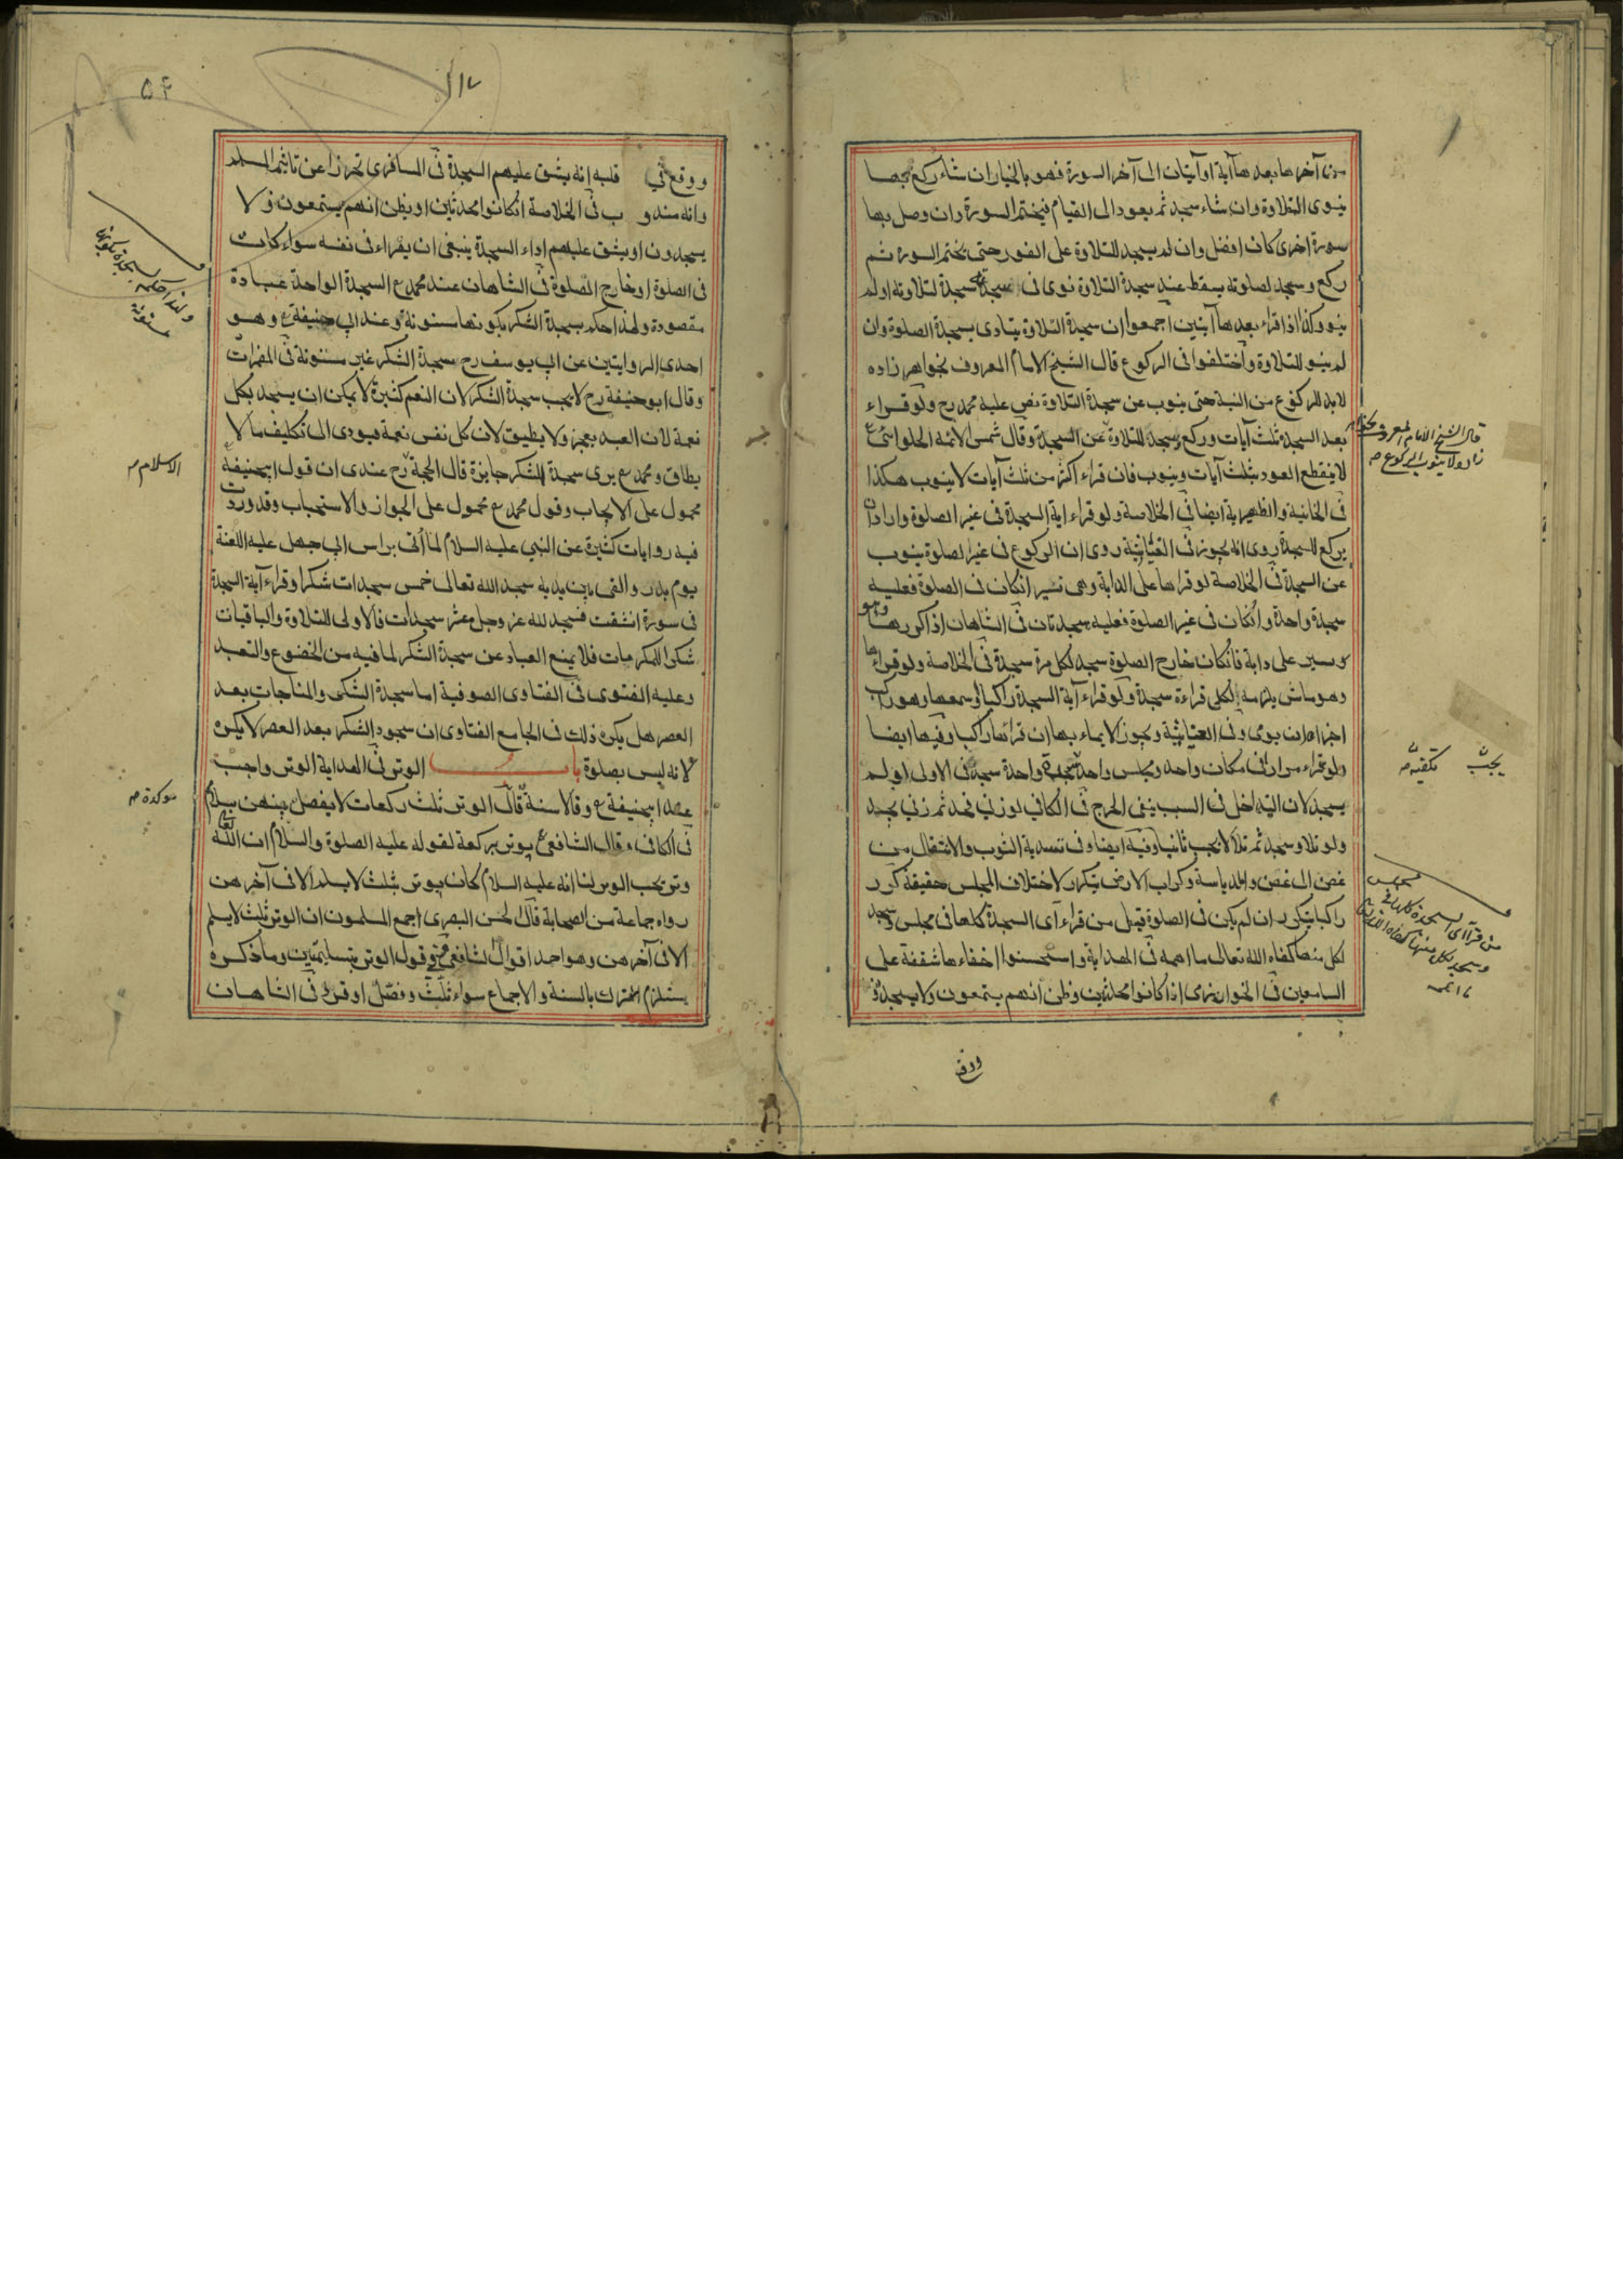 من آخرها بعدها آية او آيتان الى آخر السورة فهو بالخيار ان شاء ركع بها
ينوى التلاوة وان شاء سجد ثم يعود الى القيام فيختم السورة وان وصل بها
سورة اخرى كان افضل وان لم يسجد للتلاوة على الفور حتى يختم السورة ثم
ركع وسجد لصلوته يسقط عنه سجدة التلاوة نوى فى سجدة لتلاوته او لم
ينو وكذا اذا قراء بعدها آيتين اجمعوا ان سجدة التلاوة يتادى بسجدة الصلوة وان
لم ينو للتلاوة واختلفوا فى الركوع قال الشيخ الامام المعروف بخواهر زاده
لا بد للركوع من النية حتى ينوب عن سجدة التلاوة نص عليه محمد رح ولو قراء
بعد السجدة ثلث آيات وركع وسجد للتلاوة عن السجدة وقال شمس الائمة الحلوائى
لا ينقطع الفور بثلث آيات وينوب فان قراء اكثر من ثلث آيات لا ينوب هكذا
فى الخانية والظهيرية ايضا فى الخلاصة ولو قراء اية السجدة فى غير الصلوة واراد ان
يركع للسجدة روى انه يجوز فى العتابية روى ان الركوع فى غير الصلوة ينوب
عن السجدة فى الخلاصة لو قراها على الدابة وهى تسير انكان فى الصلوة فعليه
سجدة واحدة وانكان فى غير الصلوة فعليه سجدتان فى الشاهان اذا كررها وهو
يسير على دابة فانكان خارج الصلوة سجد لكل مرة سجدة فى الخلاصة ولو قراءها
وهو ماش يلزمه لكل قراءة سجدة ولو قراء آية السجدة راكبا او سمعها وهو راكب
اجزاه ان يومى وفى العتابية ويجوز الايماء بها ان قرائها راكبا وفيها ايضا
ولو قراء مرارا فى مكان واحد ومجلس واحد سجدة واحدة سجد فى الاولى او لم
يسجد لان التداخل فى السبب ينفى الحرج فى الكافى لو زنى فحد ثم زنى يحد
ولو تلا وسجد ثم تلا لا يجب ثانيا وفيه ايضا وفى تسدية الثوب والانتقال من
غصن الى غصن والدياسة وكراب الارض يتكرر لاختلاف المجلس حقيقة كرر
راكبا يتكرر ان لم يكن فى الصلوة قيل من قراء آى السجدة كلها فى مجلس وسجد
لكل منها كفاه الله تعالى ما اهمه فى الهداية واستحسنوا اخفاءها شفقة على
السامعين فى الخوارزمى اذا كانوا محدثين وظن انهم يستمعون ولا يسجدون
قال الشيخ الامام المعروف بخواهر
زاده لا ينوب الركوع م
يجب
تكفيه م
من قرأ آى السجدة كلها فى مجلس
وسجد لكل منها كفاه الله تعالى
ما اهمه
ووقع
٥٤
ووقع فى قلبه انه يشق عليهم السجدة فى المسافرى تحرزا عن تاثيم المسلم
وانه مندوب فى الخلاصة انكانوا محدثين او يظن انهم يستمعون ولا
يسجدون او يشق عليهم اداء السجدة ينبغى ان يقراء فى نفسه سواء كان
فى الصلوة او خارج الصلوة فى الشاهان عند محمد ع السجدة الواحدة عبادة
مقصودة ولهذا حكم بسجدة الشكر بكونها مسنونة وعند ابى حنيفة ع وهو
احدى الروايتين عن ابى يوسف رح سجدة الشكر غير مسنونة فى المضمرات
وقال ابو حنيفة رح لا يجب سجدة الشكر لان النعم كثيرة لا يمكن ان يسجد بكل
نعمة لان العبد يعجز ولا يطيق لان كل نفس نعمة فيودى الى تكليف ما لا
يطاق ومحمد ع يرى سجدة الشكر جايزة قال الحجة رح عندى ان قول ابيحنيفة
محمول على الايجاب وقول محمد ع محمول على الجواز والاستحباب وقد وردت
فيه روايات كثيرة عن النبي عليه السلام لما أتى براس ابى جهل عليه اللعنة
يوم بدر والقى بين يديه سجد الله تعالى خمس سجدات شكرا وقراء آية السجدة
فى سورة انشقت فسجد لله عز وجل عشر سجدات فالاولى للتلاوة والباقيات
شكرا للمكرمات فلا يمنع العباد عن سجدة الشكر لما فيه من الخضوع والتعبد
وعليه الفتوى فى الفتاوى الصوفية اما سجدة الشكر والمناجات بعد
العصر هل يكره ذلك فى الجامع الفتاوى ان سجود الشكر بعد العصر لا يكره
لانه ليس بصلوة باب الوتر فى الهداية الوتر واجب
عند ابيحنيفة ع وقالا سنة قال الوتر ثلث ركعات لا يفصل بينهن بسلام
فى الكافى وقال الشافعى ع يوتر بركعة لقوله عليه الصلوة والسلام ان الله تعالى
وتر يحب الوتر لنا انه عليه السلام كان يوتر بثلث لا يسلم الا فى آخرهن
رواه جماعة من الصحابة قال الحسن البصرى اجمع المسلمون ان الوتر ثلث لا يسلم
الا فى آخرهن وهو احد اقوال الشافعى وفى قول الوتر بتسليمتين وما ذكره
يستلزم الترك بالسنة والاجماع سواء ثلث وفصل او فرد فى الشاهان
ولهذا حكم بسجدة بكونها
مسنونة
الاسلام م
موكدة م